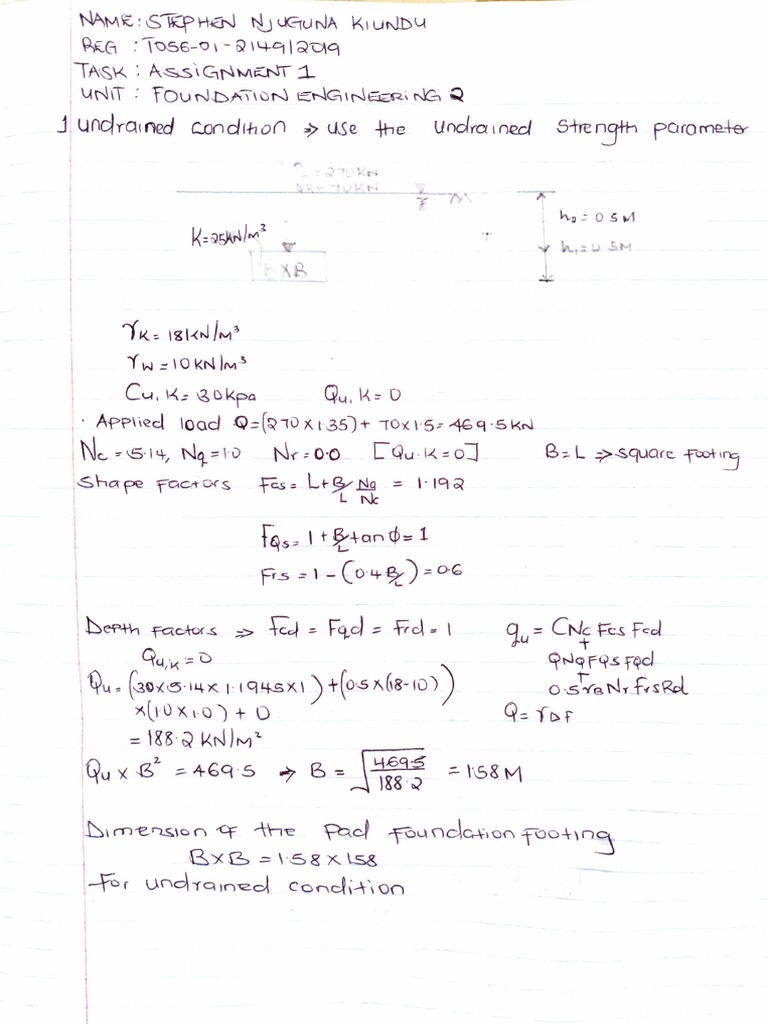 NAME: STEPHEN NJUGUNA KIUNDU
REG : T056-01-2149/2019
TASK : ASSIGNMENT 1
UNIT : FOUNDATION ENGINEERING 2
1 undrained condition ⇒ use the undrained strength parameter
= 270 KN
QK = 70KN
h2 = 0.5M
K=25KN/m³
h1 = 0.5M
B X B
γK = 18KN/M³
γW = 10KN/M³
Cu, K = 30kpa Qu, K = 0
· Applied load Q=(270 x 1.35) + 70 x 1.5 = 469.5 KN
Nc = 5.14, Nq = 1.0 Nr = 0.0 [Qu.K = 0] B = L ⇒ square footing
Shape factors Fcs = L + B/L Nq/Nc = 1.192
Fqs = 1 + B/L tan Φ = 1
Frs = 1 - (0.4 B/L) = 0.6
Depth factors ⇒ Fcd = Fqd = Frd = 1 qu = CNc Fcs Fcd
+
Qu,k = 0 QNqFQsFqd
+
Qu = (30 x 5.14 x 1.1945 x 1) + (0.5 x (18-10)) 0.5 rB Nr FrsRd
x (10 x 1.0) + 0 Q = γDf
= 188.2 KN/M²
Qu x B² = 469.5 ⇒ B = √469.5/188.2 = 1.58 M
Dimension of the Pad foundation footing
B X B = 1.58 x 1.58
For undrained condition